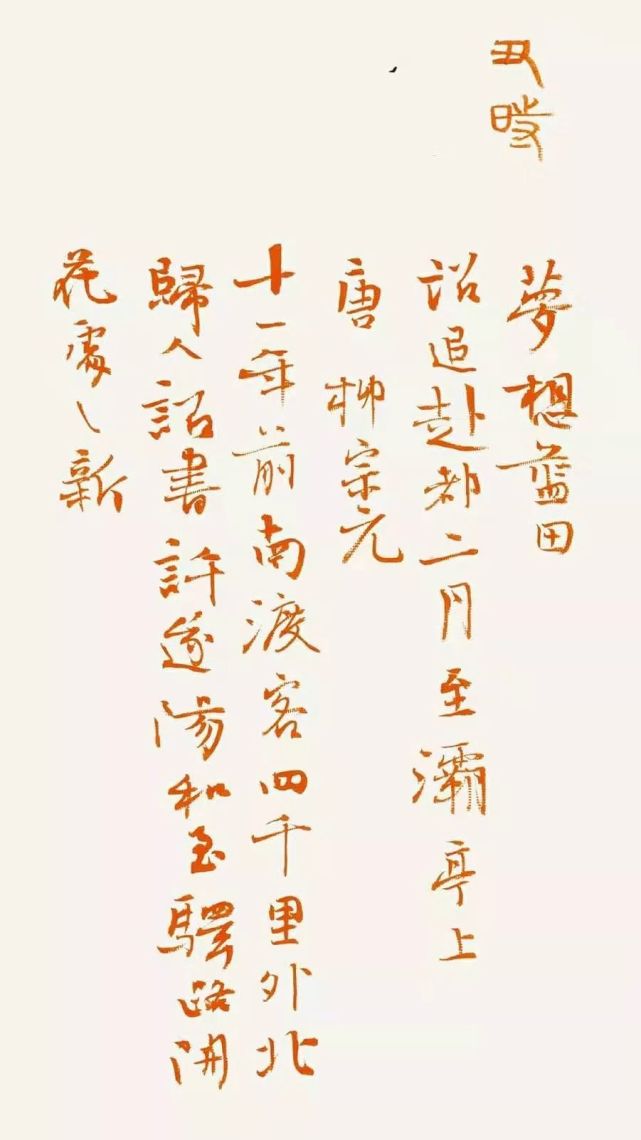 夢想藍田
詔追赴都二月至灞亭上
唐 柳宗元
十一年前南渡客四千里外北
歸人詔書許逐陽和至驛路開
花處〻新